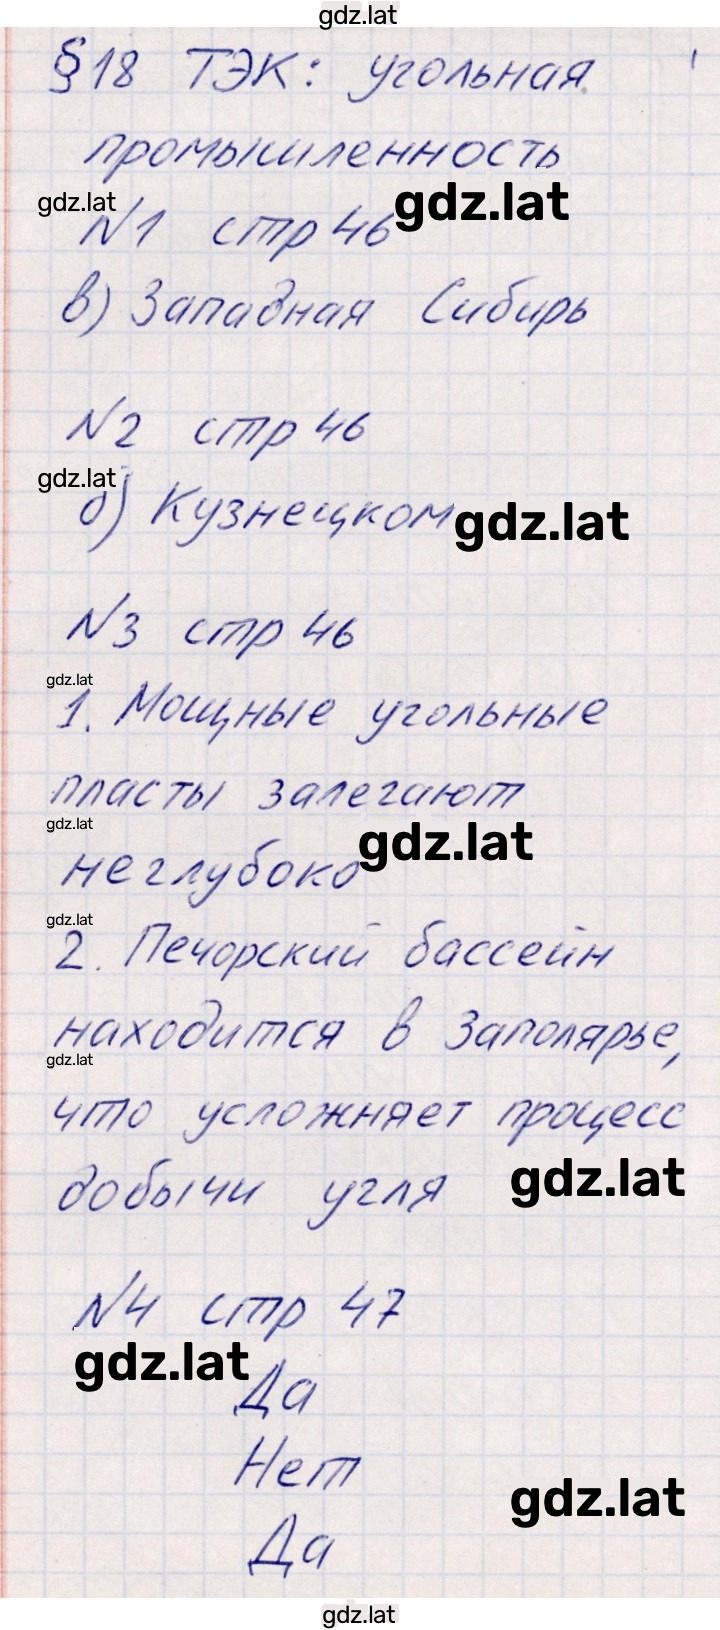 gdz.lat
§18 ТЭК: угольная
промышленность
gdz.lat
gdz.lat
№1 стр 46
в) Западная Сибирь
№2 стр 46
gdz.lat
б) Кузнецком
gdz.lat
№3 стр 46
gdz.lat
1. Мощные угольные
пласты залегают
gdz.lat
gdz.lat
неглубоко
gdz.lat
2. Печорский бассейн
находится в Заполярье,
gdz.lat
что усложняет процесс
gdz.lat
добычи угля
№4 стр 47
gdz.lat
Да
Нет
gdz.lat
Да
gdz.lat